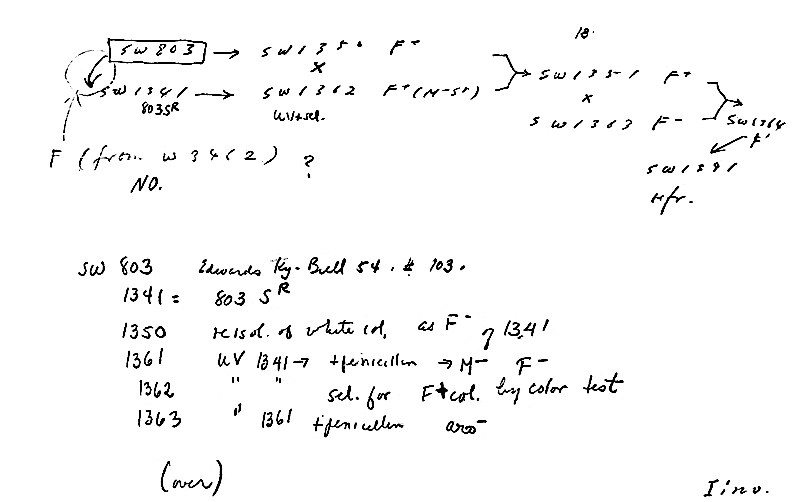 18.
SW 803 → SW 1350 F+
x
SW 1341 → SW 1362 F+ (M-S+) → SW 1351 F+
803 SR UV+sel. x
SW 1363 F- SW 1364
F (from W 3462) ? F+
NO. SW 1391
Hfr.
SW 803 Edwards Ky-Brell 54. # 103.
1341 = 803 SR
1350 reisol. of white col. as F- of 1341
1361 UV 1341 → +penicillin → M- F-
1362 " " sel. for F+ col. by color test
1363 " 1361 +penicillin aro-
(over)
Iino.